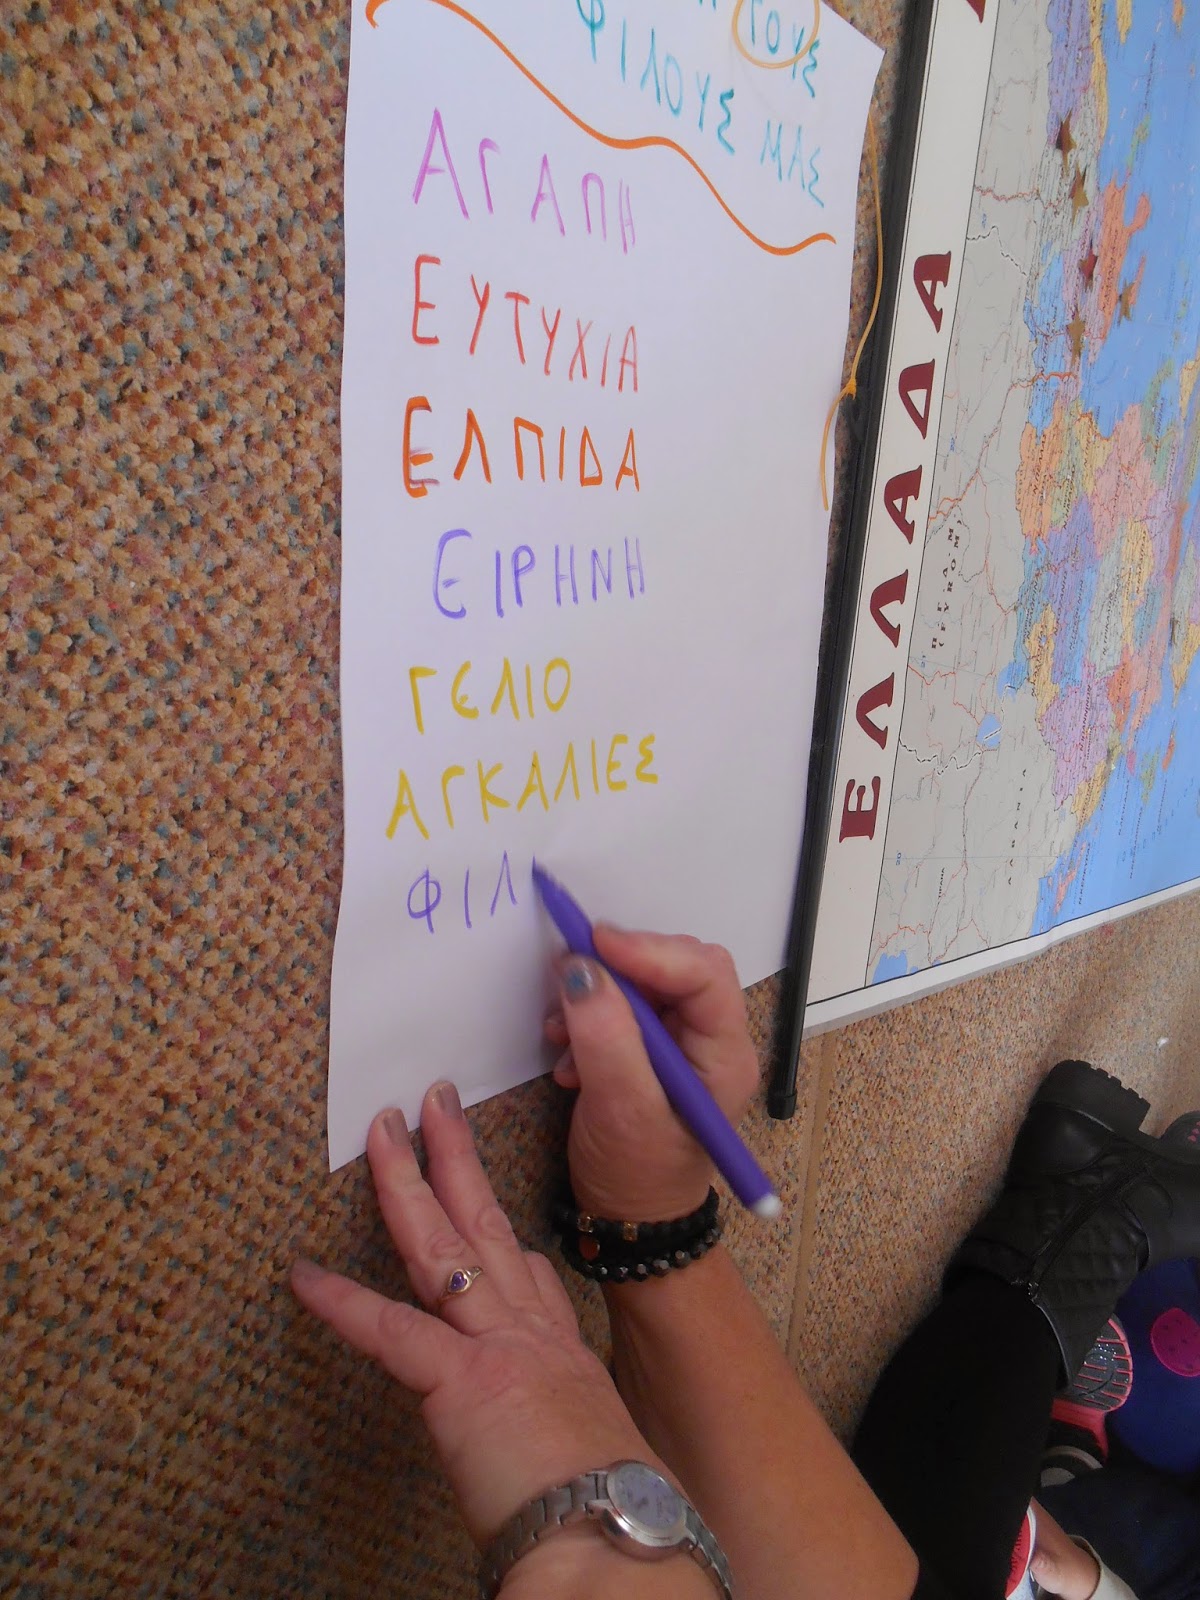 ΤΟΥΣ
ΦΙΛΟΥΣ ΜΑΣ
ΑΓΑΠΗ
ΕΥΤΥΧΙΑ
ΕΛΠΙΔΑ
ΕΙΡΗΝΗ
ΓΕΛΙΟ
ΑΓΚΑΛΙΕΣ
ΦΙΛ
ΕΛΛΑΔΑ